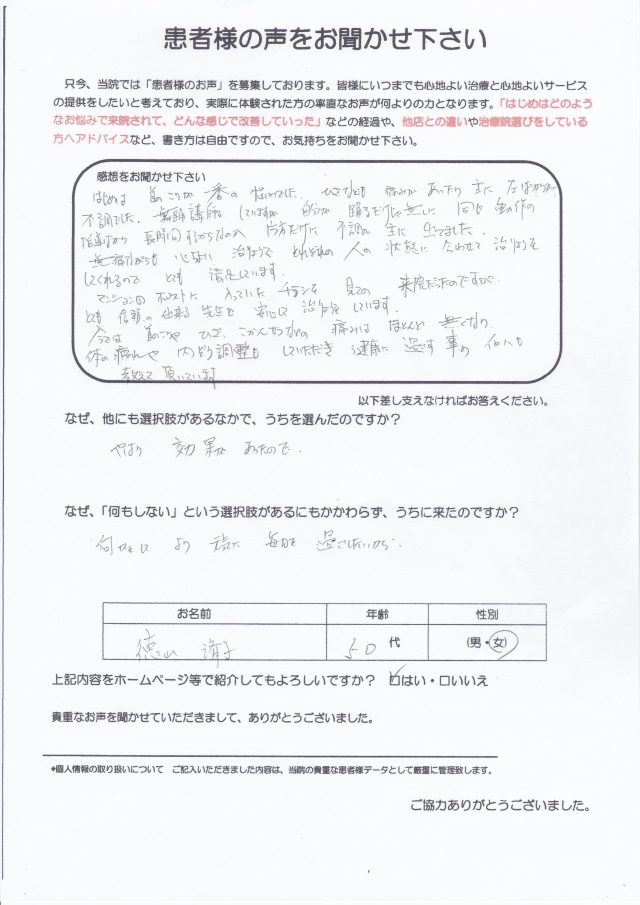 患者様の声をお聞かせ下さい
只今、当院では「患者様のお声」を募集しております。皆様にいつまでも心地よい治療と心地よいサービス
の提供をしたいと考えており、実際に体験された方の率直なお声が何よりの力となります。「はじめはどのよう
なお悩みで来院されて、どんな感じで改善していった」などの経過や、他店との違いや治療院選びをしている
方へアドバイスなど、書き方は自由ですので、お気持ちをお聞かせ下さい。
感想をお聞かせ下さい
はじめは 首こりが 一番の 悩みでした。ひざなども 痛みが あったり 主に 左ばかりが
不調でした。舞踊講師を していますが 自分が 踊るだけでは無しに 同じ 動作の
指導から 長時間 するからなのか 片方だけに 不調が 主に 出てました。
心ない 治りょうで それぞれの 人の 状態に 合わせて 治りょうを
してくれるので とても 満足しています。
マンションの ポストに 入っていた チラシを 見ての 来院だったのですが
とても 信頼の 出来る 先生で 安心して 治りょうを しています。
今では 首のこりや ひざ、こかんせつなどの 痛みは ほとんど 無くなり
体の疲れや 内ぞう調整も していただき 健康に 過す 事の 何にも
教えて 頂いています
以下差し支えなければお答えください。
なぜ、他にも選択肢があるなかで、うちを選んだのですか？
やはり 効果が あったので。
なぜ、「何もしない」という選択肢があるにもかかわらず、うちに来たのですか？
何かと より 楽に 毎日を 過ごしたいから。
お名前 年齢 性別
徳山 清子 50 代 (男・女)
上記内容をホームページ等で紹介してもよろしいですか？ ☑はい・□いいえ
貴重なお声を聞かせていただきまして、ありがとうございました。
*個人情報の取り扱いについて ご記入いただきました内容は、当院の貴重な患者様データとして厳重に管理致します。
ご協力ありがとうございました。